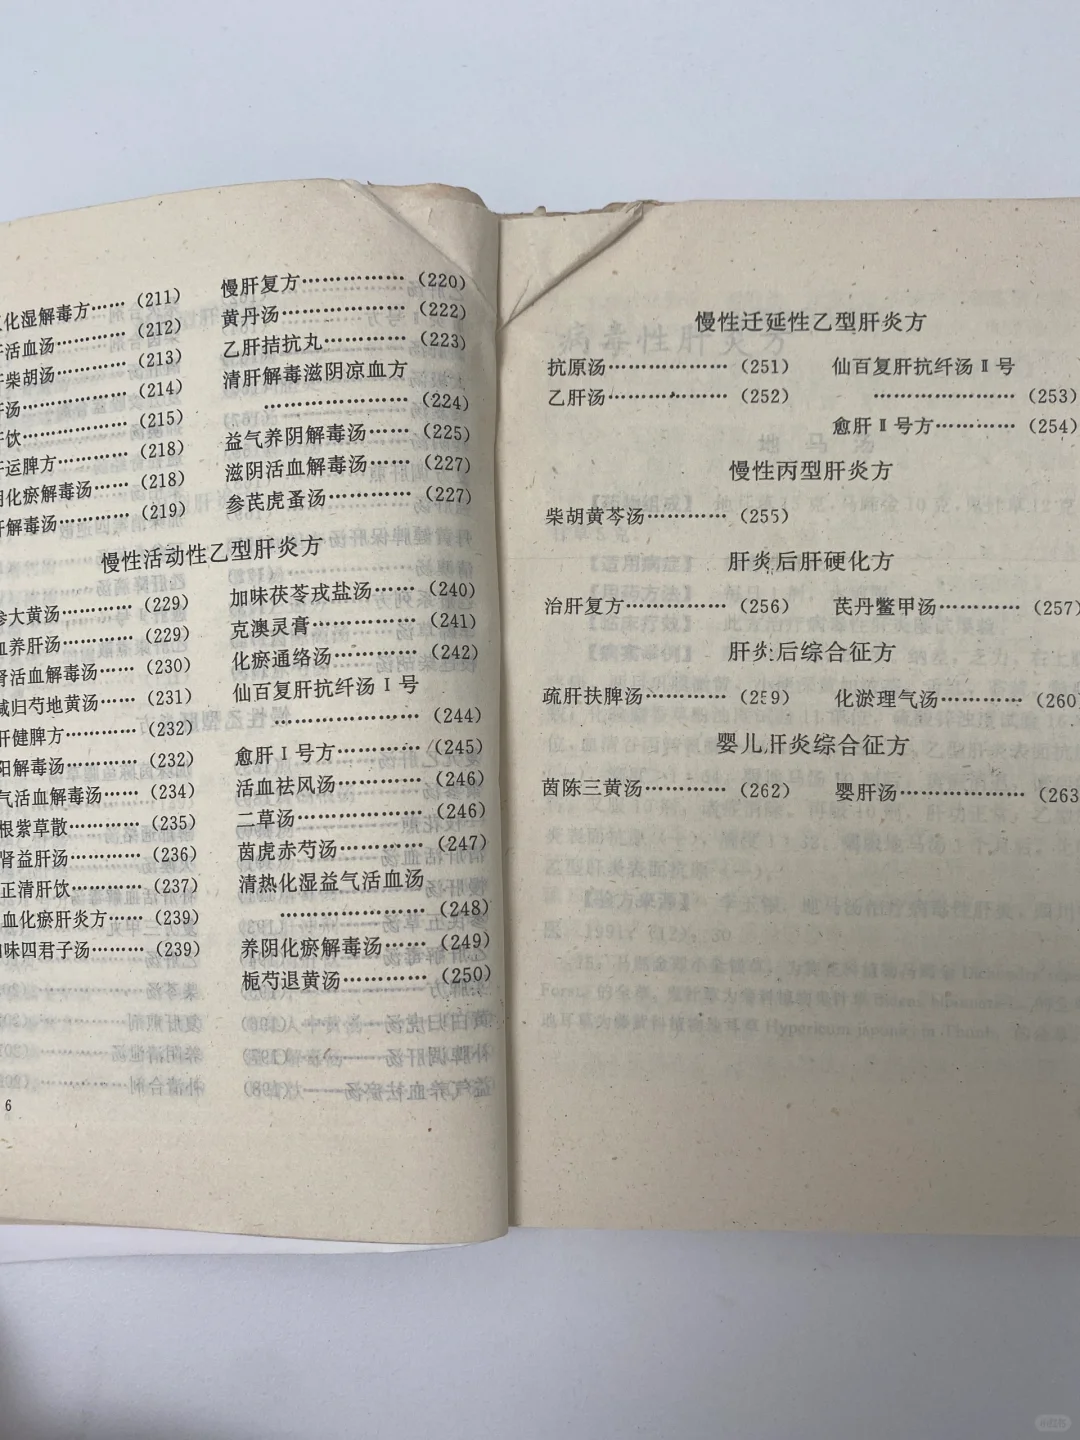 化湿解毒方……(211)
活血汤……(212)
柴胡汤……(213)
汤……(214)
饮……(215)
运脾方……(218)
化瘀解毒汤……(218)
解毒汤……(219)
慢肝复方……(220)
黄丹汤……(222)
乙肝拮抗丸……(223)
清肝解毒滋阴凉血方
……(224)
益气养阴解毒汤……(225)
滋阴活血解毒汤……(227)
参芪虎蚤汤……(227)
慢性活动性乙型肝炎方
参大黄汤……(229)
血养肝汤……(229)
肾活血解毒汤……(230)
归芍地黄汤……(231)
肝健脾方……(232)
阳解毒汤……(232)
气活血解毒汤……(234)
根紫草散……(235)
肾益肝汤……(236)
正清肝饮……(237)
血化瘀肝炎方……(239)
味四君子汤……(239)
加味茯苓戎盐汤……(240)
克澳灵膏……(241)
化瘀通络汤……(242)
仙百复肝抗纤汤Ⅰ号
……(244)
愈肝Ⅰ号方……(245)
活血祛风汤……(246)
二草汤……(246)
茵虎赤芍汤……(247)
清热化湿益气活血汤
……(248)
养阴化瘀解毒汤……(249)
栀芍退黄汤……(250)
6
慢性迁延性乙型肝炎方
抗原汤……(251)
乙肝汤……(252)
仙百复肝抗纤汤Ⅱ号
……(253)
愈肝Ⅱ号方……(254)
慢性丙型肝炎方
柴胡黄芩汤……(255)
肝炎后肝硬化方
治肝复方……(256)
芪丹鳖甲汤……(257)
肝炎后综合征方
疏肝扶脾汤……(259)
化淤理气汤……(260)
婴儿肝炎综合征方
茵陈三黄汤……(262)
婴肝汤……(263